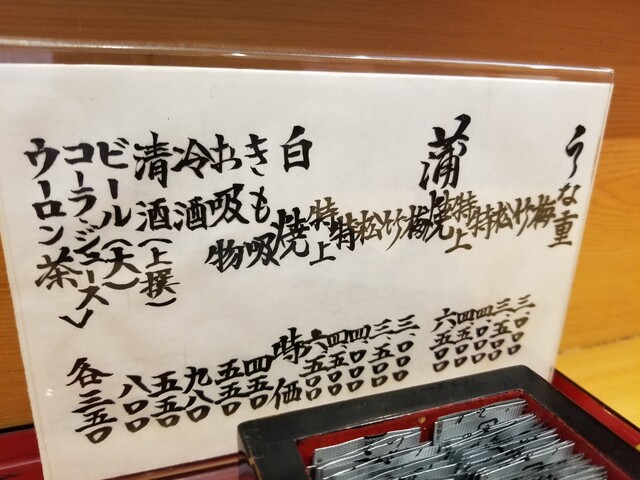 うな重 梅 三、〇〇〇
竹 三、五〇〇
松 四、〇〇〇
特 四、五〇〇
特上 六、五〇〇
蒲焼 梅 三、〇〇〇
竹 三、五〇〇
松 四、〇〇〇
特 四、五〇〇
特上 六、
白焼 時価
きも吸 四五〇
お吸物 五五〇
冷酒 九八〇
清酒(上撰) 五五〇
ビール(大) 八〇〇
コーラ・ジュース
ウーロン茶 各三五〇